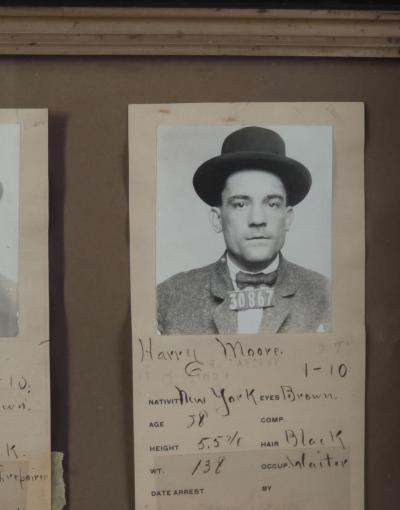 30867
Harry Moore.
1-10
NATIVITY New York EYES Brown.
AGE 38 COMP.
HEIGHT 5.5 HAIR Black
WT. 138 OCCUP. Waiter
DATE ARREST BY
10.
wn.
K.
repairer